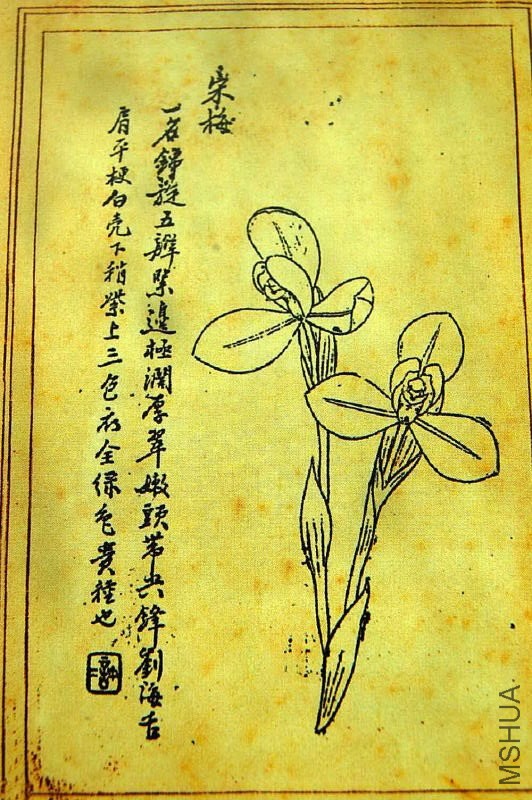 荣梅
一名錦旋五瓣緊邊極濶厚翠嫩頭帶尖鋒劉海舌
肩平梗白壳下稍紫上三色府全绿色貴種也
MSHUA